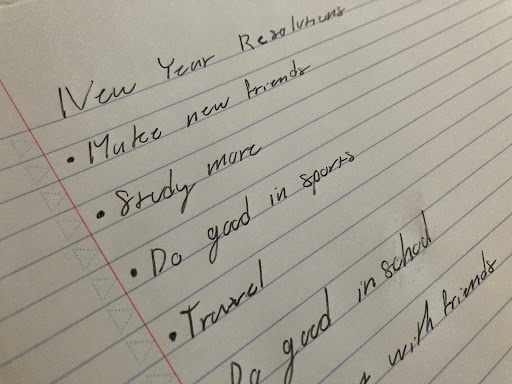 New Year Resolutions
• Make new friends
• Study more
• Do good in sports
• Travel
Do good in school
with friends